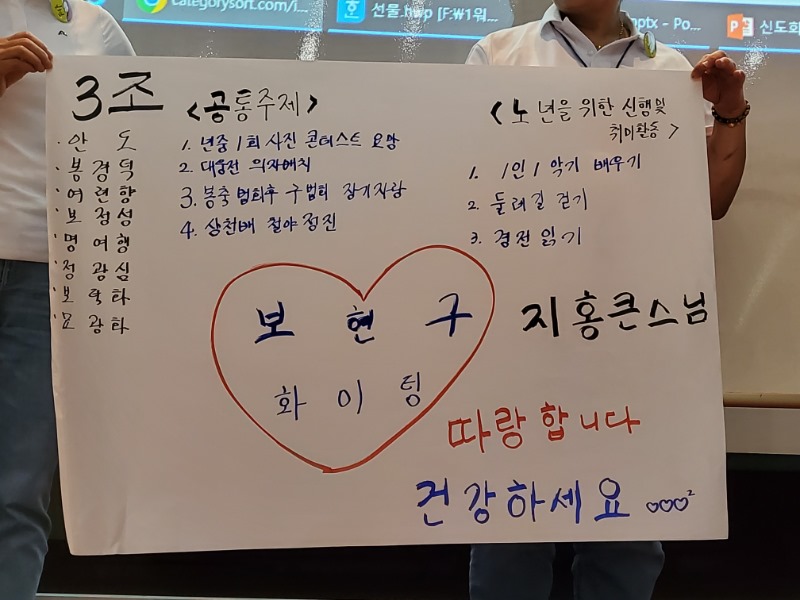 categorysort.com/i...
선물.hwp [F:₩1워
ptx - Po...
신도회
3조
안 도
봉 경 덕
여 련 향
보 정 성
명 여 행
정 광 심
보 탁 타
묘 광 타
<공통주제>
1. 년중 1회 사진 콘테스트 요망
2. 대웅전 의자배치
3. 봉축 법회후 구법회 장기자랑
4. 삼천배 철야정진
<노년을 위한 신행및
취미활동>
1. 1인 1 악기 배우기
2. 둘레길 걷기
3. 경전읽기
보 현 구
화 이 팅
지홍큰스님
따랑합니다
건강하세요 ♡♡♡²